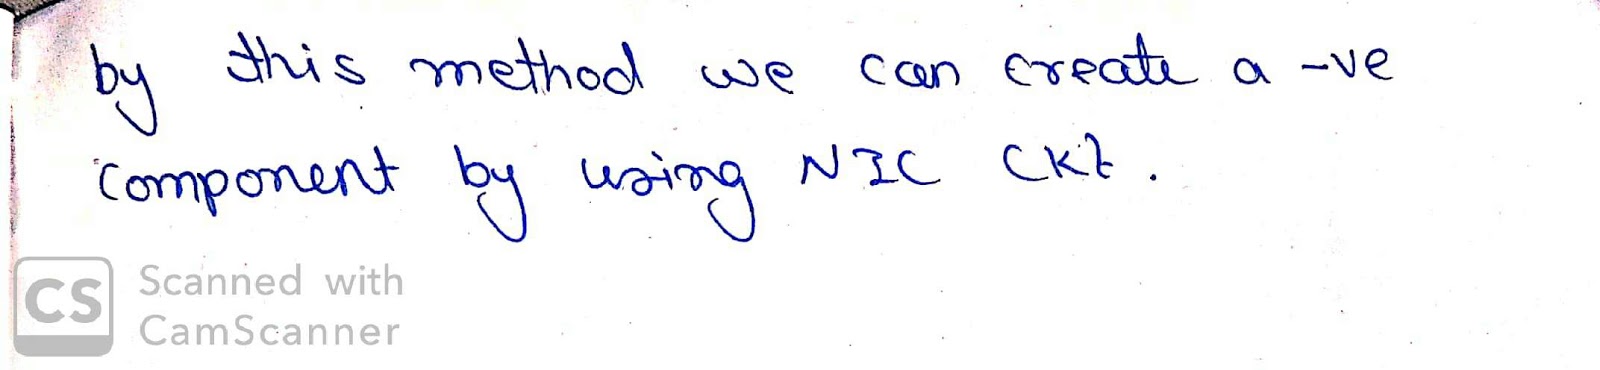 by this method we can create a -ve
component by using NIC Ckt.
CS Scanned with
CamScanner